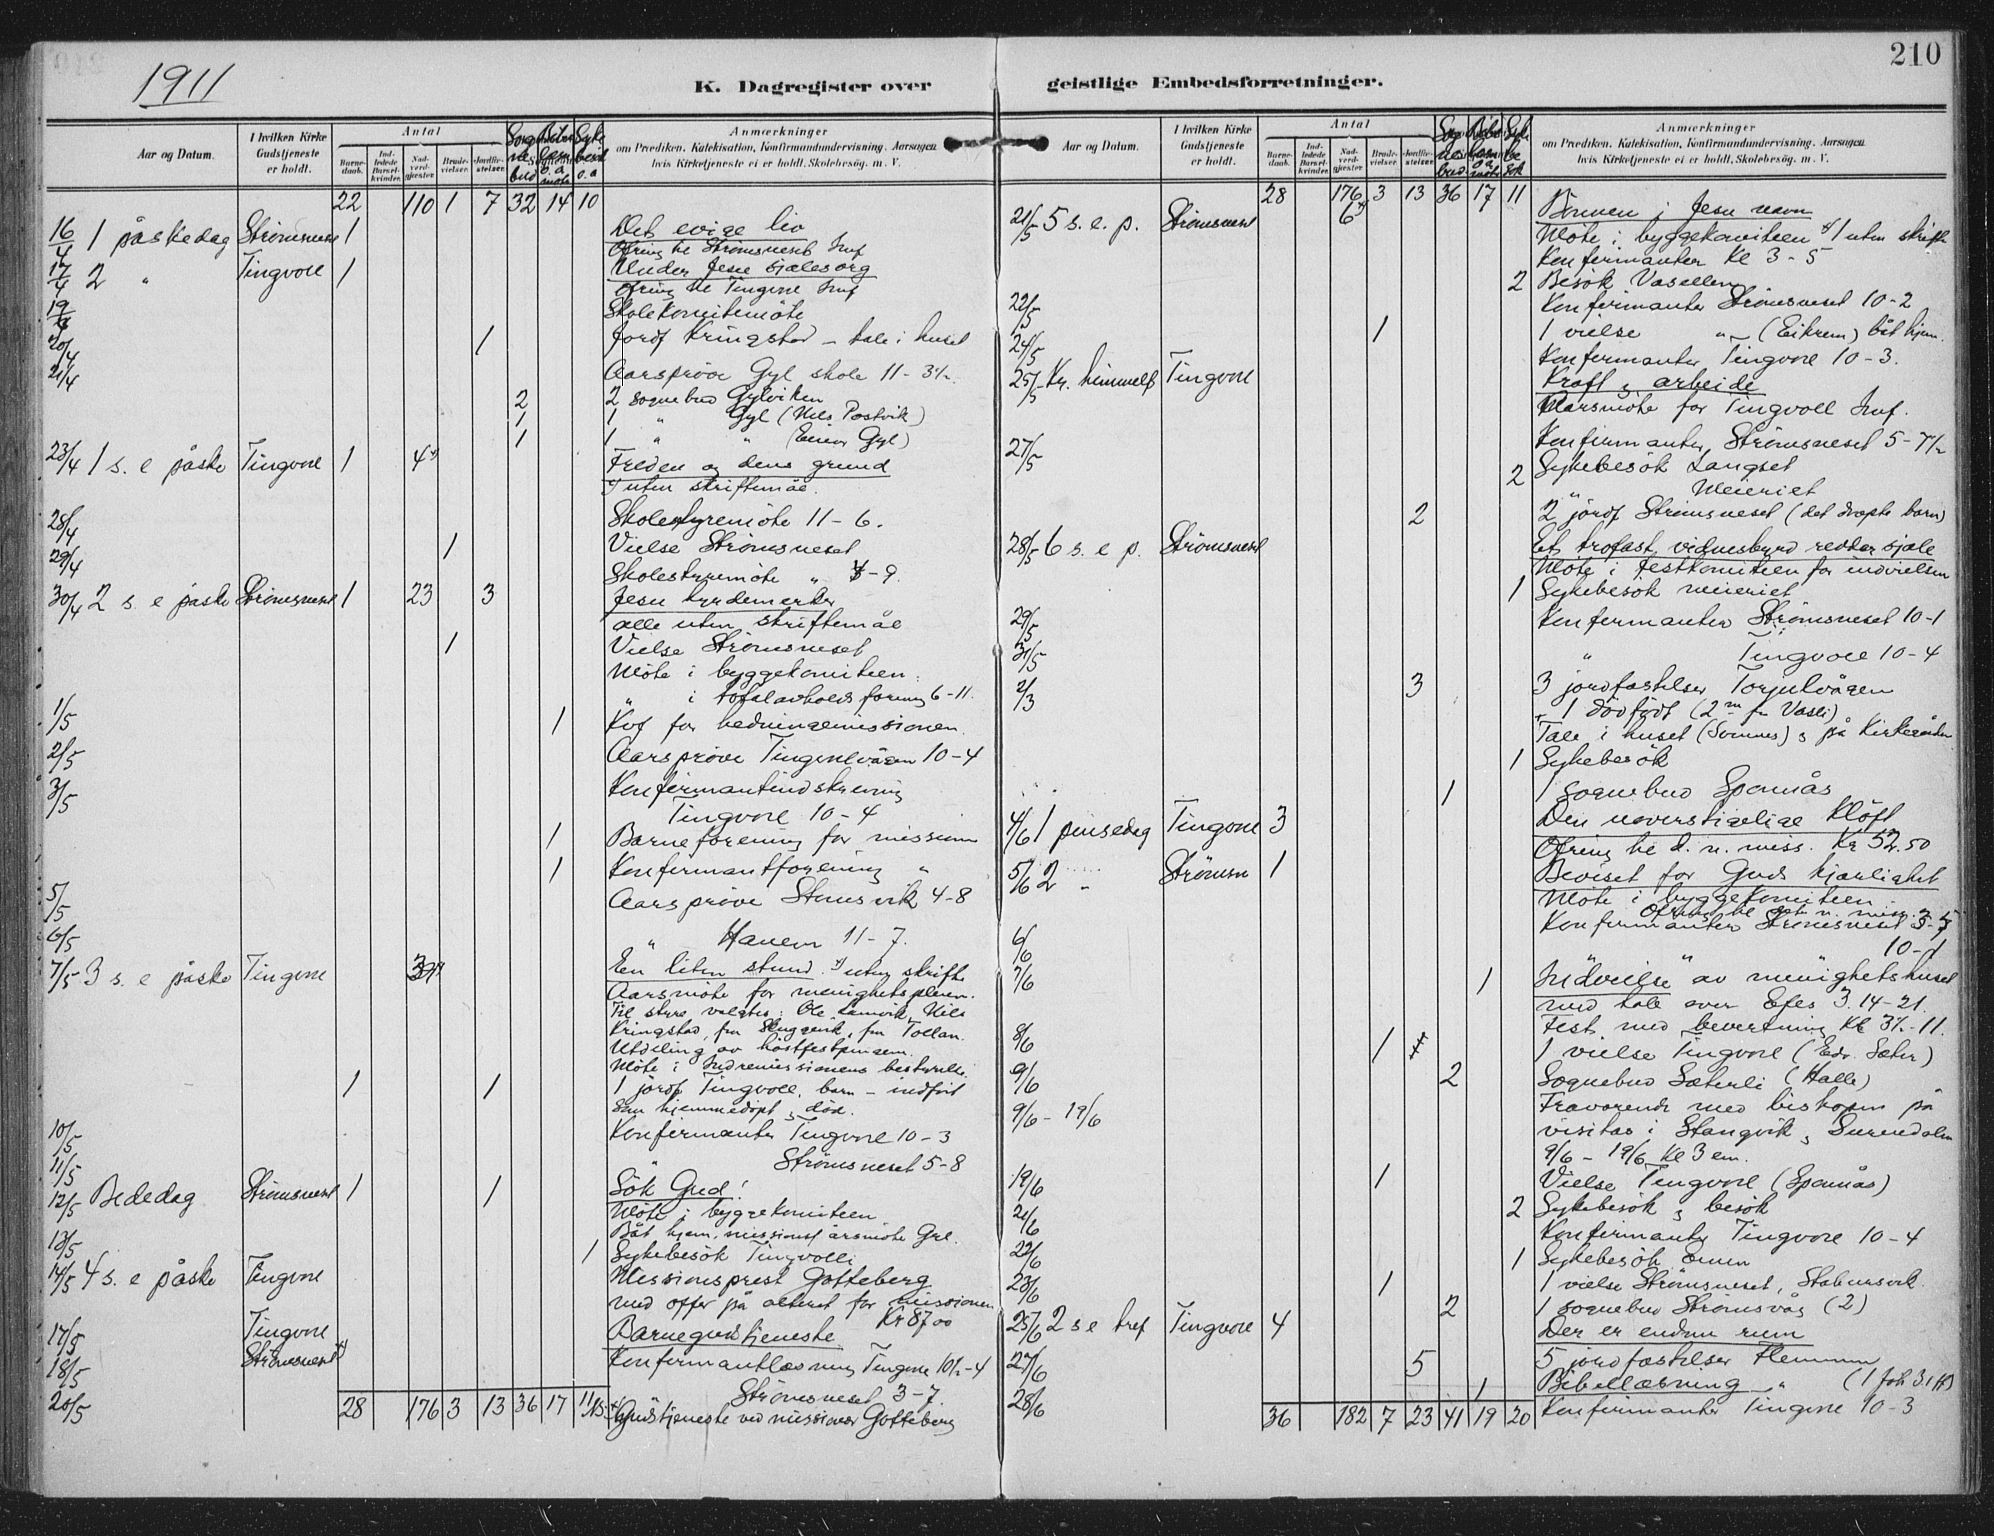 1911
K. Dagregister over
Aar og Datum.
I hvilken Kirke Gudstjeneste er holdt.
Antal
Barnedaab.
Indledede Barselkvinder.
Nadverdgjæster.
Brudevielser.
Jordfæstelser.
Anmærkninger
om Prædiken. Katekisation, Konfirmandundervisning. Aarsagen
hvis Kirketjeneste ei er holdt. Skolebesøg. m. V.
22 110 1 7 32 14 10
16/4 1 påskedag Strømsneset 1 Det evige liv
Ofring til Strømsneset Inf
17/4 2 " Tingvoll 1 Under Jesu sjælesorg
Ofring til Tingvoll Inf
19/4 Skolekomitemöte
20/4 1 Jordf Kringstad – tale i huset
21/4 Aarspröve Gyl skole 11 – 3½
2 2 sognebud Gylviken
1 1 " Gyl (Nils Postvik)
1 1 " " (Einar Gyl)
23/4 1 s. e påske Tingvoll 1 4 Freden og dens grund
uten skriftemål.
28/4 Skolestyremöte 11 – 6.
29/4 1 Vielse Strømsneset
Skolestyremöte " – 9.
30/4 2 s. e påske Strømsneset 1 23 3 Jesu hyrdemerker
alle uten skriftemål
1 Vielse Strømsneset
Möte i byggekomiteen
" i totalavholdsforening 6 – 11.
1/5 1 Kvf for hedningemissionen
2/5 Aarspröve Tingvollvågen 10 – 4
3/5 Konfirmantindskrivning
Tingvoll 10 – 4
1 Barneforening for missionen
1 Konfirmantforening "
5/5 Aarspröve Stensvik 4 – 8
6/5 " Hanem 11 – 7.
7/5 3 s. e påske Tingvoll En liten stund. uten skrifte
Aarsmöte for menighetspleien.
Til styre valgtes: Ole Lamvik, Nils
Kringstad, fru Skuggevik, fru Tollan.
Utdeling av höstfestpengene.
Möte i Indremissionens bestyrelse.
1 1 1 jordf Tingvoll, barn – indfört
som hjemmedöpt & död.
10/5 Konfirmanter Tingvoll 10 – 3
11/5 Strømsneset 5 – 8
12/5 Bededag Strømsneset 1 1 Sök Gud!
Möte i byggekomiteen
Båt hjem. missionsf årsmöte Gyl.
13/5 1 Sykebesök Tingvoll
14/5 4 s. e påske Tingvoll Missionsprest Gotteberg
med offer på alteret for missionen
Kr 87 00
17/5 Tingvoll Barnegudstjeneste
18/5 Strømsneset Konfirmantlæsning Tingvoll 10½ – 4
Strømsneset 3 – 7.
20/5 28 176 3 13 36 17 11 Gudstjeneste ved missionær Gotteberg
210
geistlige Embedsforretninger.
Aar og Datum.
I hvilken Kirke Gudstjeneste er holdt.
Antal
Barnedaab.
Indledede Barselkvinder.
Nadverdgjæster.
Brudevielser.
Jordfæstelser.
Anmærkninger
om Prædiken. Katekisation, Konfirmandundervisning. Aarsagen
hvis Kirketjeneste ei er holdt. Skolebesøg. m. V.
28 176 3 13 36 17 11
21/5 5 s. e. p. Strømsneset 6 Bönnen i Jesu navn
Möte i byggekomiteen 1 uten skrifte
Konfirmanter Kl 3 – 5
2 Besök Vasellen
22/5 Konfirmanter Strømsneset 10 – 2
1 1 vielse " (Eikrem) båt hjem.
24/5 Konfirmanter Tingvoll 10 – 3.
25/5 Kr. himmelf Tingvoll Kraft & arbeide
Aarsmöte for Tingvoll Inf.
27/5 Konfirmanter Strømsneset 5 – 7½
2 Sykebesök Langset
" Meieriet
2 2 jordf Strømsneset (det dræpte barn)
28/5 6 s. e p. Strømsneset Et trofast vidnesbyrd redder sjæle
Möte i festkomiteen for indvielsen
1 Sykebesök meieriet
29/5 Konfirmanter Strømsneset 10 – 1
31/5 " Tingvoll 10 – 4
2/3 3 3 jordfæstelser Torjulvågen
1 dödfödt (2 fr Vasli)
Tale i huset (Svinnes) & på Kirkegården
1 Sykebesök
1 1 Sognebud Spannås
4/6 1 pinsedag Tingvoll 3 Den uoverstigelige klöft
Ofring til d. n. miss. Kr 52.50
5/6 2 " Strømsn 1 Beviset for Guds kjærlighet
Möte i byggekomiteen
Ofring til det n. miss.
Konfirmanter Strømsneset 3 – 5
6/6 10 – 1
7/6 1 "Indvielse" av menighetshuset
med tale over Efes 3. 14 – 21.
Fest med bevertning Kl 3½ – 11.
8/6 1 1 vielse Tingvoll (Edv. Sæter)
9/6 2 Sognebud Sæterli (Halle)
9/6 – 19/6 Fraværende med biskopen på
visitas i Stangvik & Surendalen
9/6 – 19/6 Kl 3 em.
19/6 1 Vielse Tingvoll (Spannås)
21/6 2 Sykebesök & besök
Konfirmanter Tingvoll 10 – 4
22/6 1 Sykebesök
23/6 1 1 vielse Strømsneset, Stabursvik.
2 1 sognebud Strømsvåg (2)
25/6 2 s e tref Tingvoll 4 Der er endnu rum
27/6 5 5 jordfæstelser
1 Bibellæsning " (1 Joh 3. 1 ff)
28/6 36 182 7 23 41 19 20 Konfirmanter Tingvoll 10 – 3